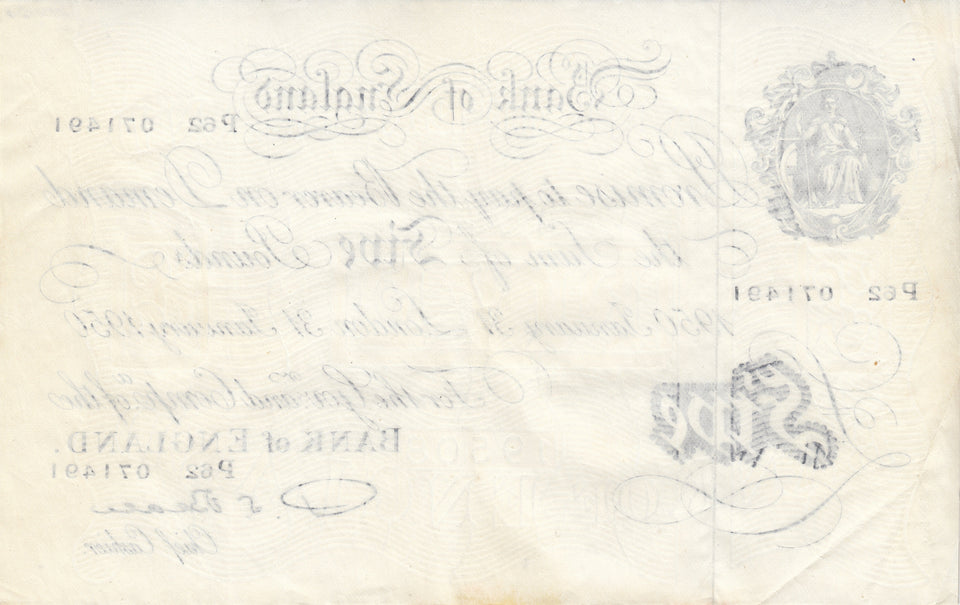 Bank of England
P62 071491
Promise to pay the Bearer on Demand
the Sum of Five Pounds
P62 071491
1950 January 31 London 31 January 1950
For the Govr. and Compa. of the
BANK of ENGLAND.
Five
P62 071491
Chief Cashier